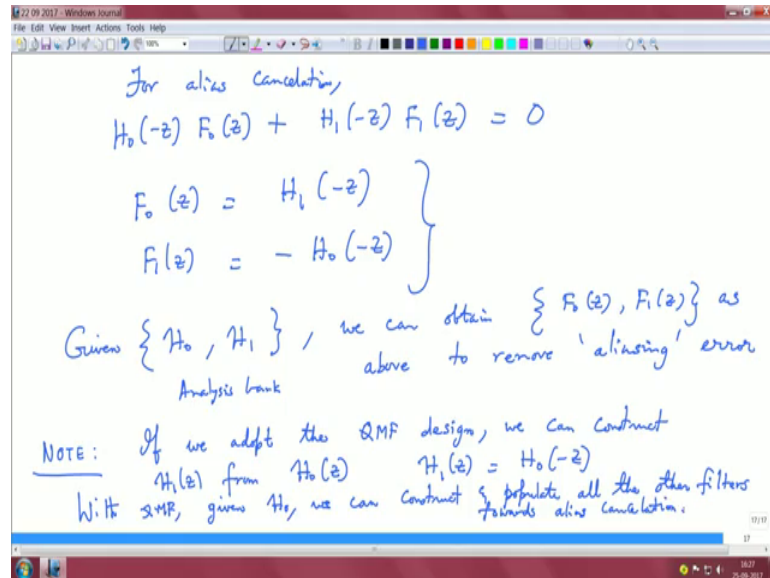 22 09 2017 - Windows Journal
File Edit View Insert Actions Tools Help
100%
For alias cancelation,
H₀(-z) F₀(z) + H₁(-z) F₁(z) = 0
F₀(z) = H₁(-z)
F₁(z) = - H₀(-z)
Given {H₀, H₁}, we can obtain {F₀(z), F₁(z)} as
Analysis bank above to remove 'aliasing' error
NOTE: If we adopt the QMF design, we can construct
H₁(z) from H₀(z) H₁(z) = H₀(-z)
With QMF, given H₀, we can construct & populate all the other filters
towards alias cancelation.
17/17
17
16:27
25-09-2017